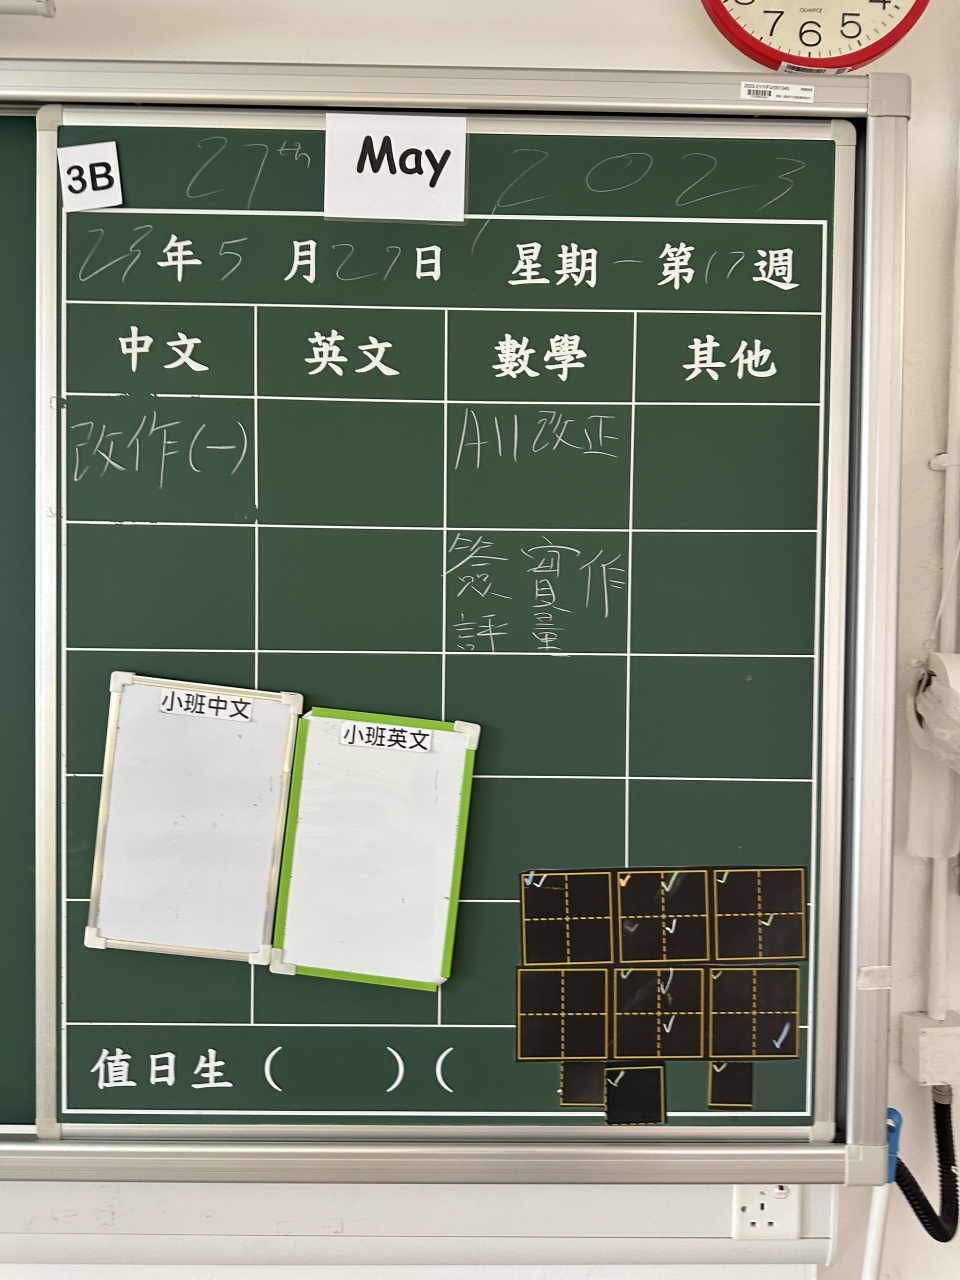 7 6 5 4
QUARTZ
3B 27th May 2023
23年5月27日 星期一 第17週
中文 英文 數學 其他
改作(一) All改正
簽 實作
評量
小班中文
小班英文
值日生 ( ) (